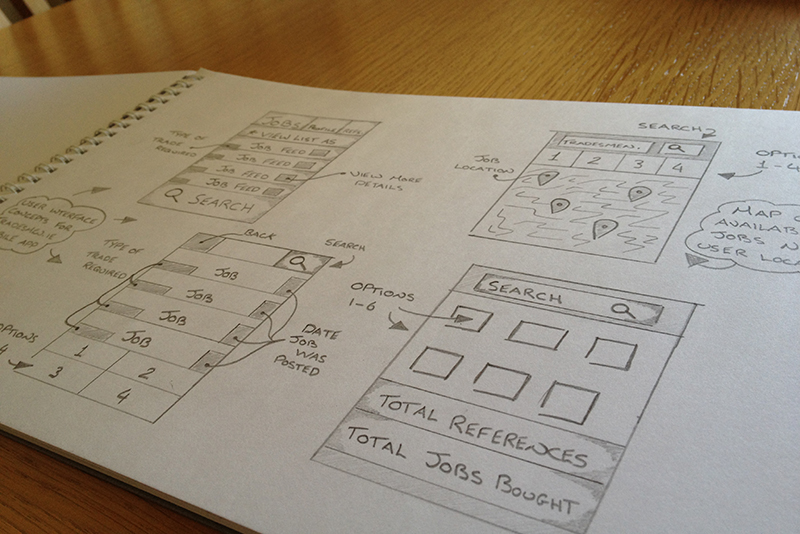 JOBS
VIEW LIST AS
JOB FEED
JOB FEED
JOB FEED
JOB FEED
SEARCH
TYPE OF
TRADE
REQUIRED
VIEW MORE
DETAILS
USER INTERFACE
CONCEPTS FOR
APP
SEARCH
TRADESMEN.
1 2 3 4
JOB
LOCATION
1-4
MAP
AVAILAB
JOBS
USER LOCA
BACK
SEARCH
TYPE OF
TRADE
REQUIRED
JOB
JOB
JOB
JOB
1 2
3 4
DATE
JOB
WAS
POSTED
OPTIONS
1-6
SEARCH
TOTAL REFERENCES
TOTAL JOBS BOUGHT